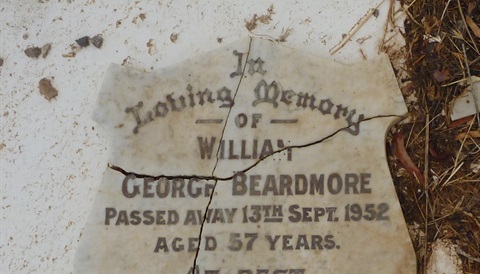 In
Loving Memory
— OF —
WILLIAM
GEORGE BEARDMORE
PASSED AWAY 13TH SEPT. 1952
AGED 57 YEARS.
AT REST